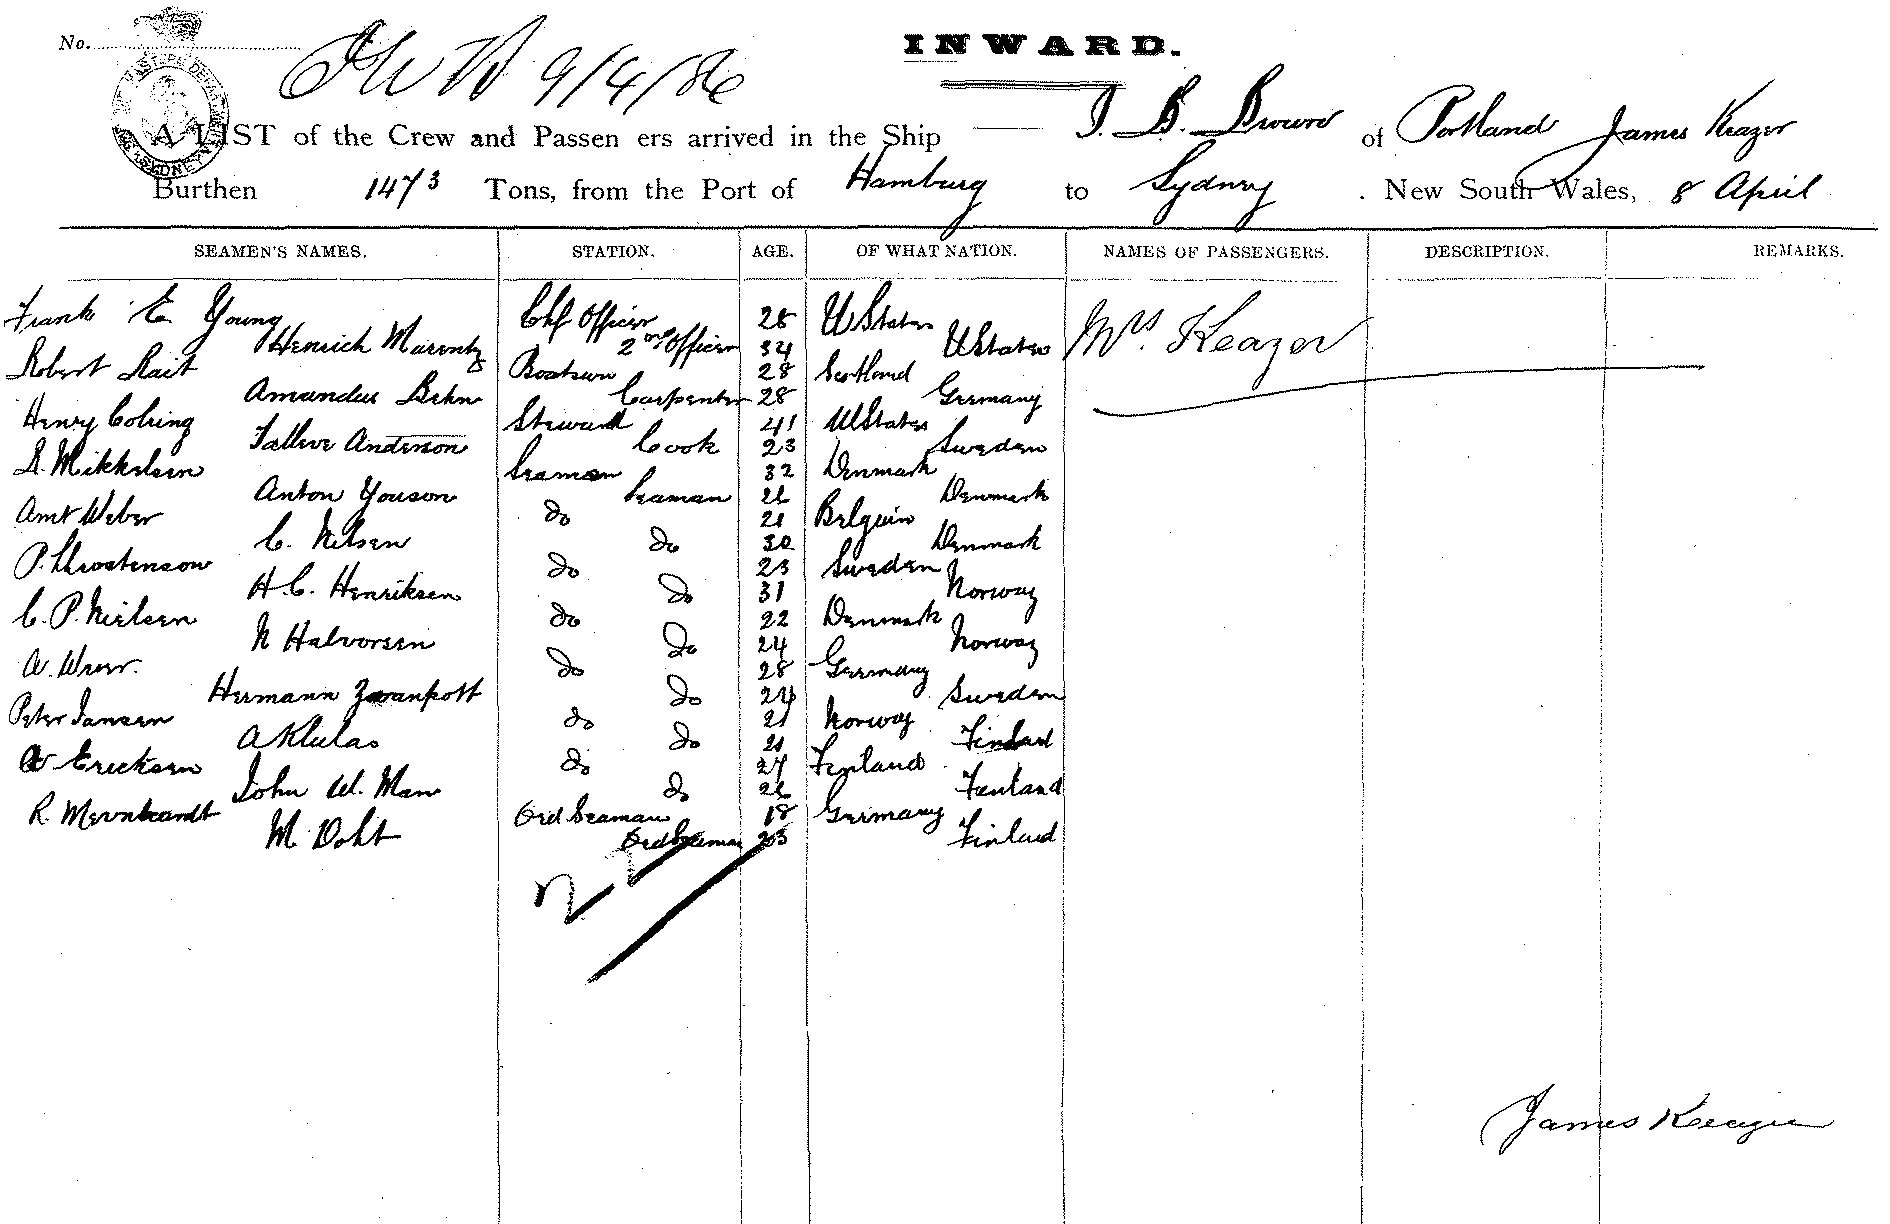 No.
9/4/86
INWARD.
A LIST of the Crew and Passen ers arrived in the Ship J. B. Brown of Portland James Keazer
Burthen 1473 Tons, from the Port of Hamburg to Sydney . New South Wales, 8 April
SEAMEN'S NAMES. STATION. AGE. OF WHAT NATION. NAMES OF PASSENGERS. DESCRIPTION. REMARKS.
Frank E Young Chf Officer 28 U States Mrs Keazer
Henrich Marentz 2nd Officer 34 U States
Robert Rait Boatswn 28 Scotland
Amandus Behn Carpenter 28 Germany
Henry Colring Steward 41 U States
Anderson Cook 23 Sweden
Mikkelsen Seaman 32 Denmark
Anton Youson Seaman 26 Denmark
Weber do 21 Belguin
C. Nilsen do 30 Denmark
P. Throstenson do 23 Sweden
H. C. Henriksen do 31 Norway
C. P. Nielsen do 22 Denmark
N Halvorsen do 24 Norway
do 28 Germany
Hermann do 24 Sweden
Peter Jansen do 21 Norway
A Klulas do 21 Finland
Ericksen do 27 Finland
John W. Man do 26 Finland
R. Ord Seaman 18 Germany
M Doht Ord Seaman 23 Finland
James Keazer